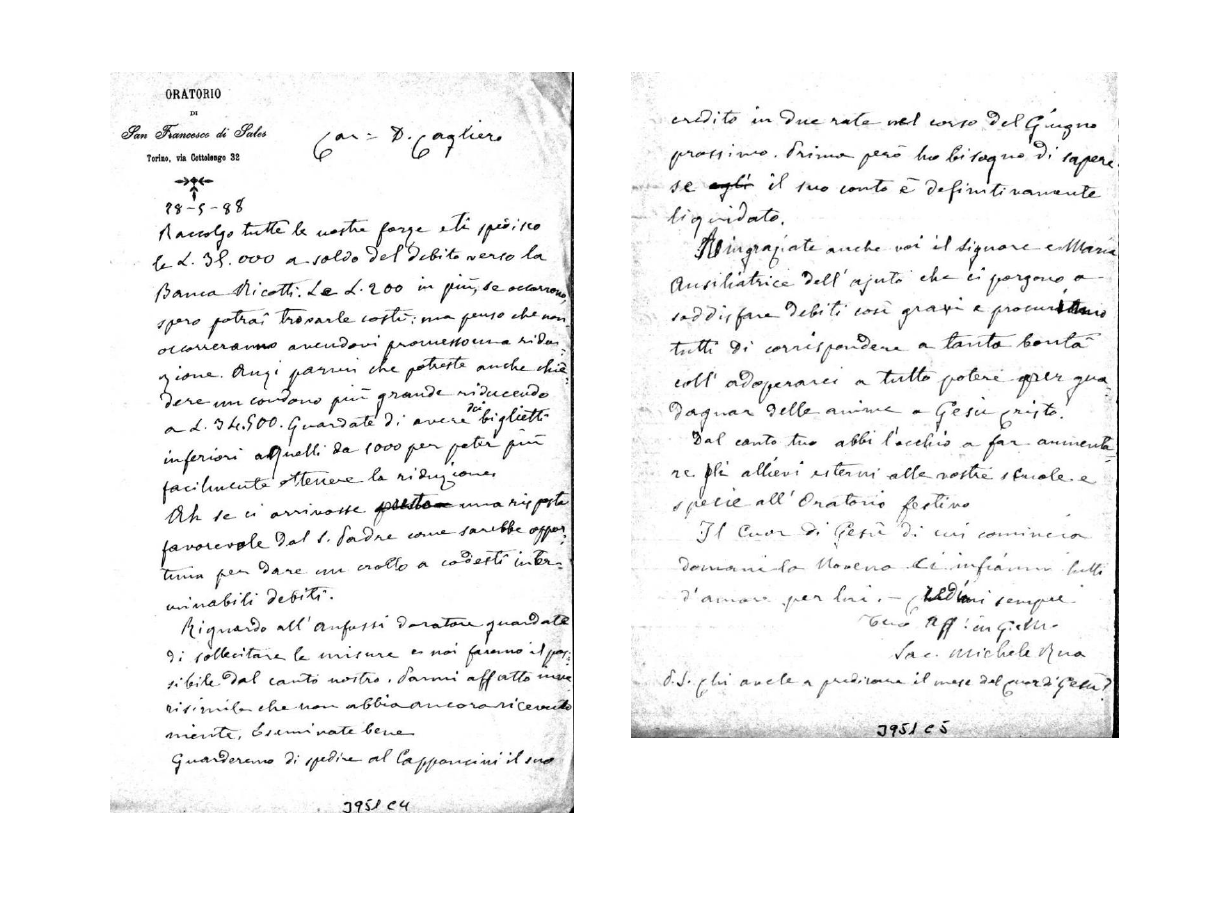 ORATORIO
DI
San Francesco di Sales
Torino, via Cottolengo 32
Car = D. Cagliero
28-5-88
Raccolgo tutte le nostre forze e ti spedisco
le L. 35.000 a saldo del debito verso la
Banca Ricotti. Le L. 200 in più, se occorrono,
spero potrai trovarle costì; ma penso che non
occorreranno avendovi promesso una ridu-
zione. Anzi parmi che potreste anche chie-
dere un condono più grande riducendo
a L. 34.500. Guardate di avere dei biglietti
inferiori a quelli da 1000 per poter più
facilmente ottenere la riduzione
Ah se ci arrivasse presto una risposta
favorevole dal S. Padre come sarebbe oppor-
tuna per dare un crollo a codesti inter-
minabili debiti.
Riguardo all'Anfossi doratore guardate
di sollecitare le misure e noi faremo il pos-
sibile dal canto nostro. Parmi affatto inve
risimile che non abbia ancora ricevuto
niente. Esaminate bene
Guarderemo di spedire al Capponcini il suo
J951 C4
credito in due rate nel corso del Giugno
prossimo. Prima però ho bisogno di sapere
se egli il suo conto è definitivamente
liquidato.
Ringraziate anche voi il Signore e Maria
Ausiliatrice dell'ajuto che ci porgono a
soddisfare debiti così gravi e procuriamo
tutti di corrispondere a tanta bontà
coll'adoperarci a tutto potere per gua-
dagnar delle anime a Gesù Cristo.
Dal canto tuo abbi l'occhio a far aumenta-
re gli allievi esterni alle nostre scuole e
specie all'Oratorio festivo
Il Cuor di Gesù di cui comincia
domani la Novena ci infiammi tutti
d'amore per lui. – Credimi sempre
Tuo aff. in G. e M.
Sac. Michele Rua
P.S. Chi avete a predicare il mese del Cuor di Gesù?
J951 C5